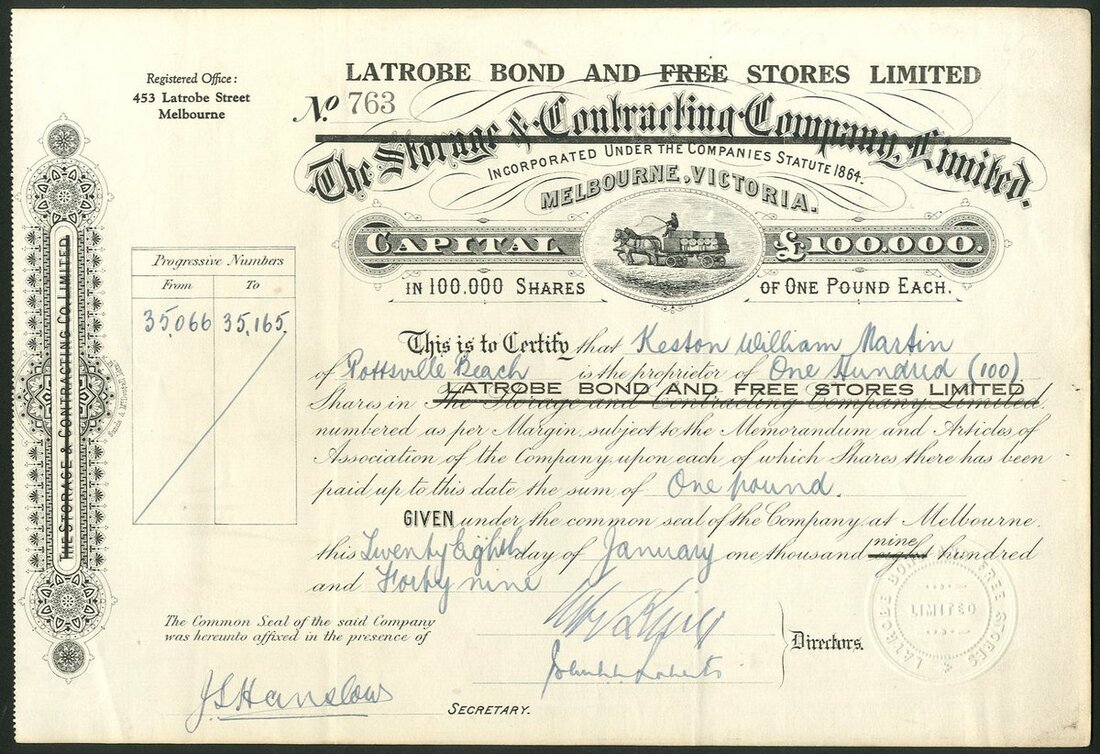 Registered Office:
453 Latrobe Street
Melbourne
LATROBE BOND AND FREE STORES LIMITED
No. 763
The Storage & Contracting Company, Limited.
INCORPORATED UNDER THE COMPANIES STATUTE 1864.
MELBOURNE, VICTORIA.
CAPITAL £100.000.
IN 100,000 SHARES OF ONE POUND EACH.
THE STORAGE & CONTRACTING CO. LIMITED
Progressive Numbers
From To
35,066 35,165
This is to Certify that Keston William Martin
of Pottsville Beach is the proprietor of One Hundred (100)
LATROBE BOND AND FREE STORES LIMITED
Shares in The Storage and Contracting Company, Limited,
numbered as per Margin, subject to the Memorandum and Articles of
Association of the Company, upon each of which Shares there has been
paid up to this date the sum of One pound.
GIVEN under the common seal of the Company, at Melbourne,
this Twenty Eighth day of January one thousand nine eight hundred
and Forty nine
The Common Seal of the said Company
was hereunto affixed in the presence of
Directors.
LATROBE BOND & FREE STORES
LIMITED
J S Hanslow
SECRETARY.